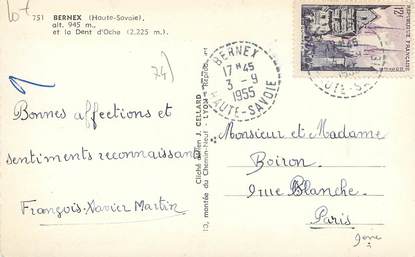 10f
751 BERNEX (Haute-Savoie),
alt. 945 m.,
et la Dent d'Oche (2.225 m.).
74)
Bonnes affections et
sentiments reconnaissants
François-Xavier Martin
Cliché aérien J. CELLARD
10, montée du Chemin-Neuf - LYON
BERNEX
17 H 45
3 - 9
1955
HAUTE-SAVOIE
12F
REPUBLIQUE FRANÇAISE
1955
UTE-SAVOIE
Monsieur et Madame
Boiron
9 rue Blanche.
Paris
9ème